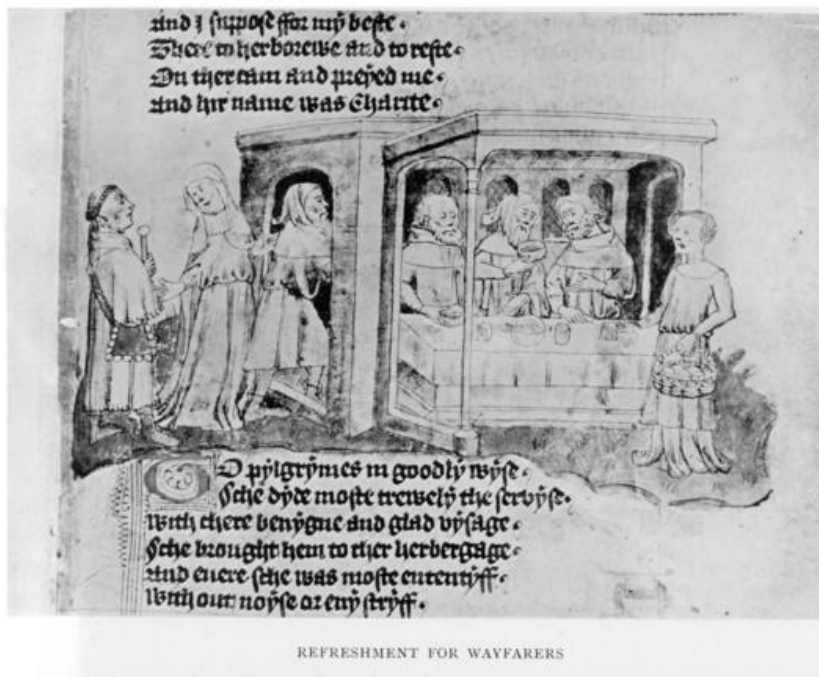 And I suppose ffor my beste
There to herborewe and to reste
On ther cam and preyed me
And hir name was Charite
TO pylgrymes in goodly wyse
Sche dyde moste trewely the servyse
With chere benygne and glad vysage
Sche brought hem to ther herbergage
And evere sche was moste ententyff
With out noyse or eny stryff
REFRESHMENT FOR WAYFARERS